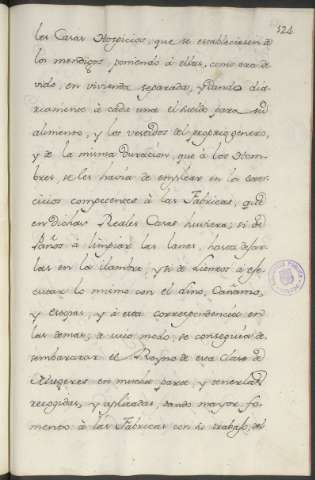 124
las Casas Hospicios, que se estableciesen á
los mendigos poniendo á ellas, como era de-
vido, en vivienda separada, y dando dia-
riamente á cada una el sueldo para su
alimento, y los vestidos del proprio genero,
y de la misma duracion, que á los Hom-
bres, se les havia de emplear en los exer-
cicios competentes á las Fabricas, que
en dichas Reales Casas huviera; si de
Paños á limpiar las lanas, hasta dejar-
las en la ilambre, y si de Lienzos á exe-
cutar lo mismo con el Lino, Cañamo,
y estopas, y á esta correspondencia en
las demas; de cuio modo, se conseguia de-
sembarazar el Reyno de esta Clase de
Mugeres en mucha parte, y tenerlas
recogidas, y aplicadas, dando mayor fo-
mento á las Fabricas con su trabajo, del